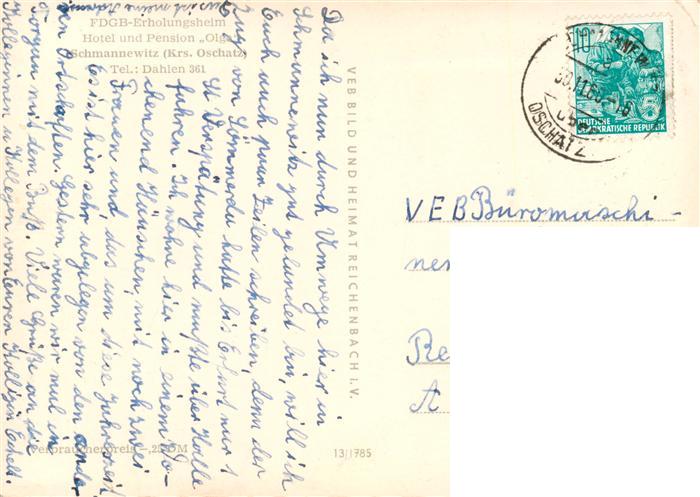 FDGB-Erholungsheim
Hotel und Pension „Olga"
Schmannewitz (Krs. Oschatz)
Tel.: Dahlen 361
Da ich nun durch Umwege hier in
Schmannewitz gut gelandet bin, will ich
Euch auch paar Zeilen schreiben, denn der
Zug von Sömmerda hatte bis Erfurt nur 1
St Verspätung und mußte über Halle
fahren. Ich wohne hier in einem Wo-
chenend Häuschen, mit noch zwei
Frauen und, das um diese Jahreszeit
Es ist hier sehr abgelegen von den ander
en Ortschaften. Gestern waren wir mal in
Torgau mit dem Buß. Viele Grüße an die
Kolleginnen u. Kollegen von Euren Kollegin
VEB BILD UND HEIMAT REICHENBACH i. V.
Verbraucherpreis -,25 DM
13/1785
DEUTSCHE
DEMOKRATISCHE REPUBLIK
10
5
OSCHATZ
VEB Büromaschi-
ner
Re
A